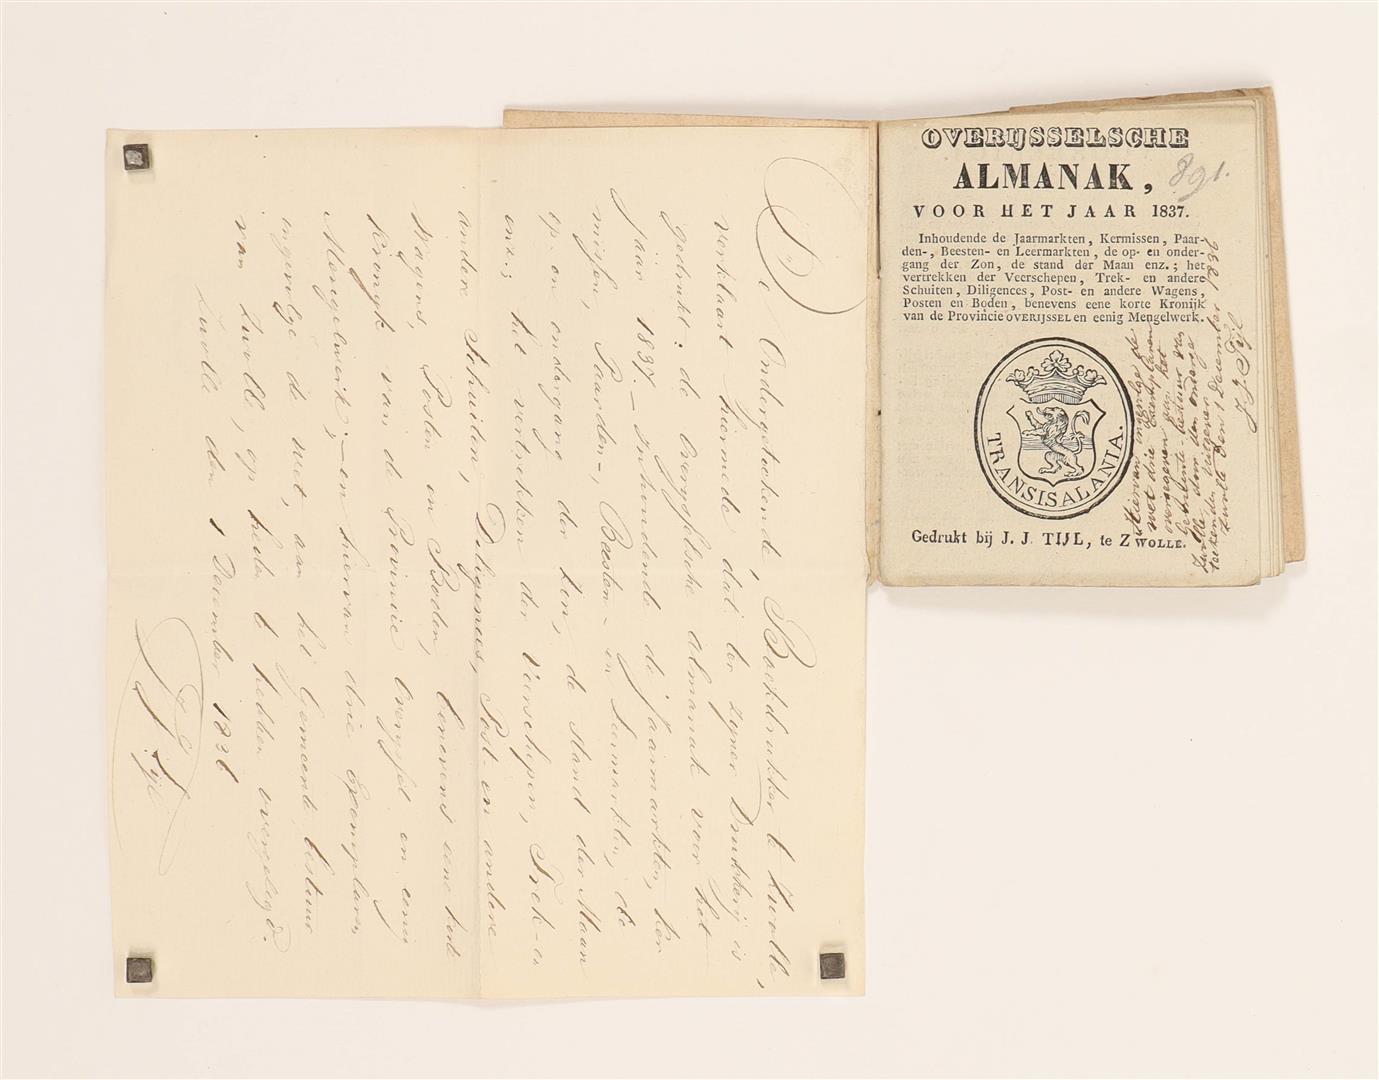 De Ondergetekende, Boekdrukker te Zwolle,
verklaart hiermede, dat ter zyner Drukkerij is
gedrukt: de Overysselsche almanak voor het
jaar 1837. – Inhoudende de jaarmarkten, Ker
missen, Paarden-, Beesten- en Leermarkten, de
op- en ondergang der Zon, de stand der Maan
enz.; het vertrekken der Veerschepen, Trek- en
andere Schuiten, Diligences, Post- en andere
Wagens, Posten en Boden, benevens eene korte
Kronyk van de Provincie Overyssel en eenig
Mengelwerk; – en hiervan drie Exemplaren
ingevolge de wet, aan het Gemeente bestuur
van Zwolle, op heden te hebben overgelegd.
Zwolle den 1 December 1836
J J Tijl
OVERIJSSELSCHE
ALMANAK,
891.
VOOR HET JAAR 1837.
Inhoudende de Jaarmarkten, Kermissen, Paar-
den-, Beesten- en Leermarkten, de op- en onder-
gang der Zon, de stand der Maan enz.; het
vertrekken der Veerschepen, Trek- en andere
Schuiten, Diligences, Post- en andere Wagens,
Posten en Boden, benevens eene korte Kronijk
van de Provincie OVERIJSSEL en eenig Mengelwerk.
TRANSISALANIA.
Gedrukt bij J. J. TIJL, te ZWOLLE.
Hiervan ingevolge de
wet drie Exemplaren
overgegeven aan het
Gemeente bestuur van
Zwolle door den onderge
teekenden Uitgever
Zwolle den 1 December 1836
J J Tijl